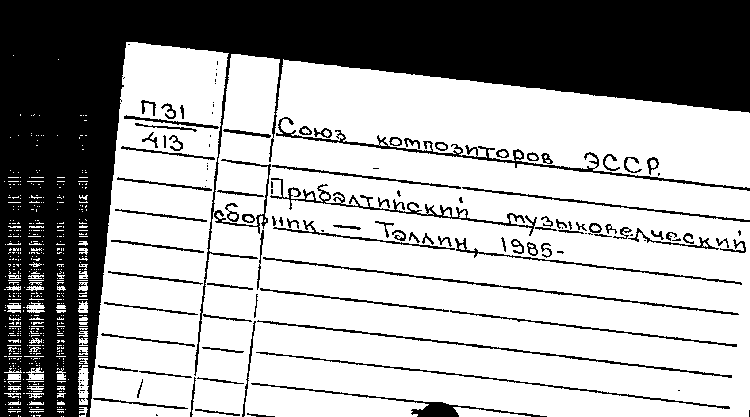 П31
413
Союз композиторов ЭССР.
Прибалтийский музыковедческий
сборник. — Таллин, 1985-